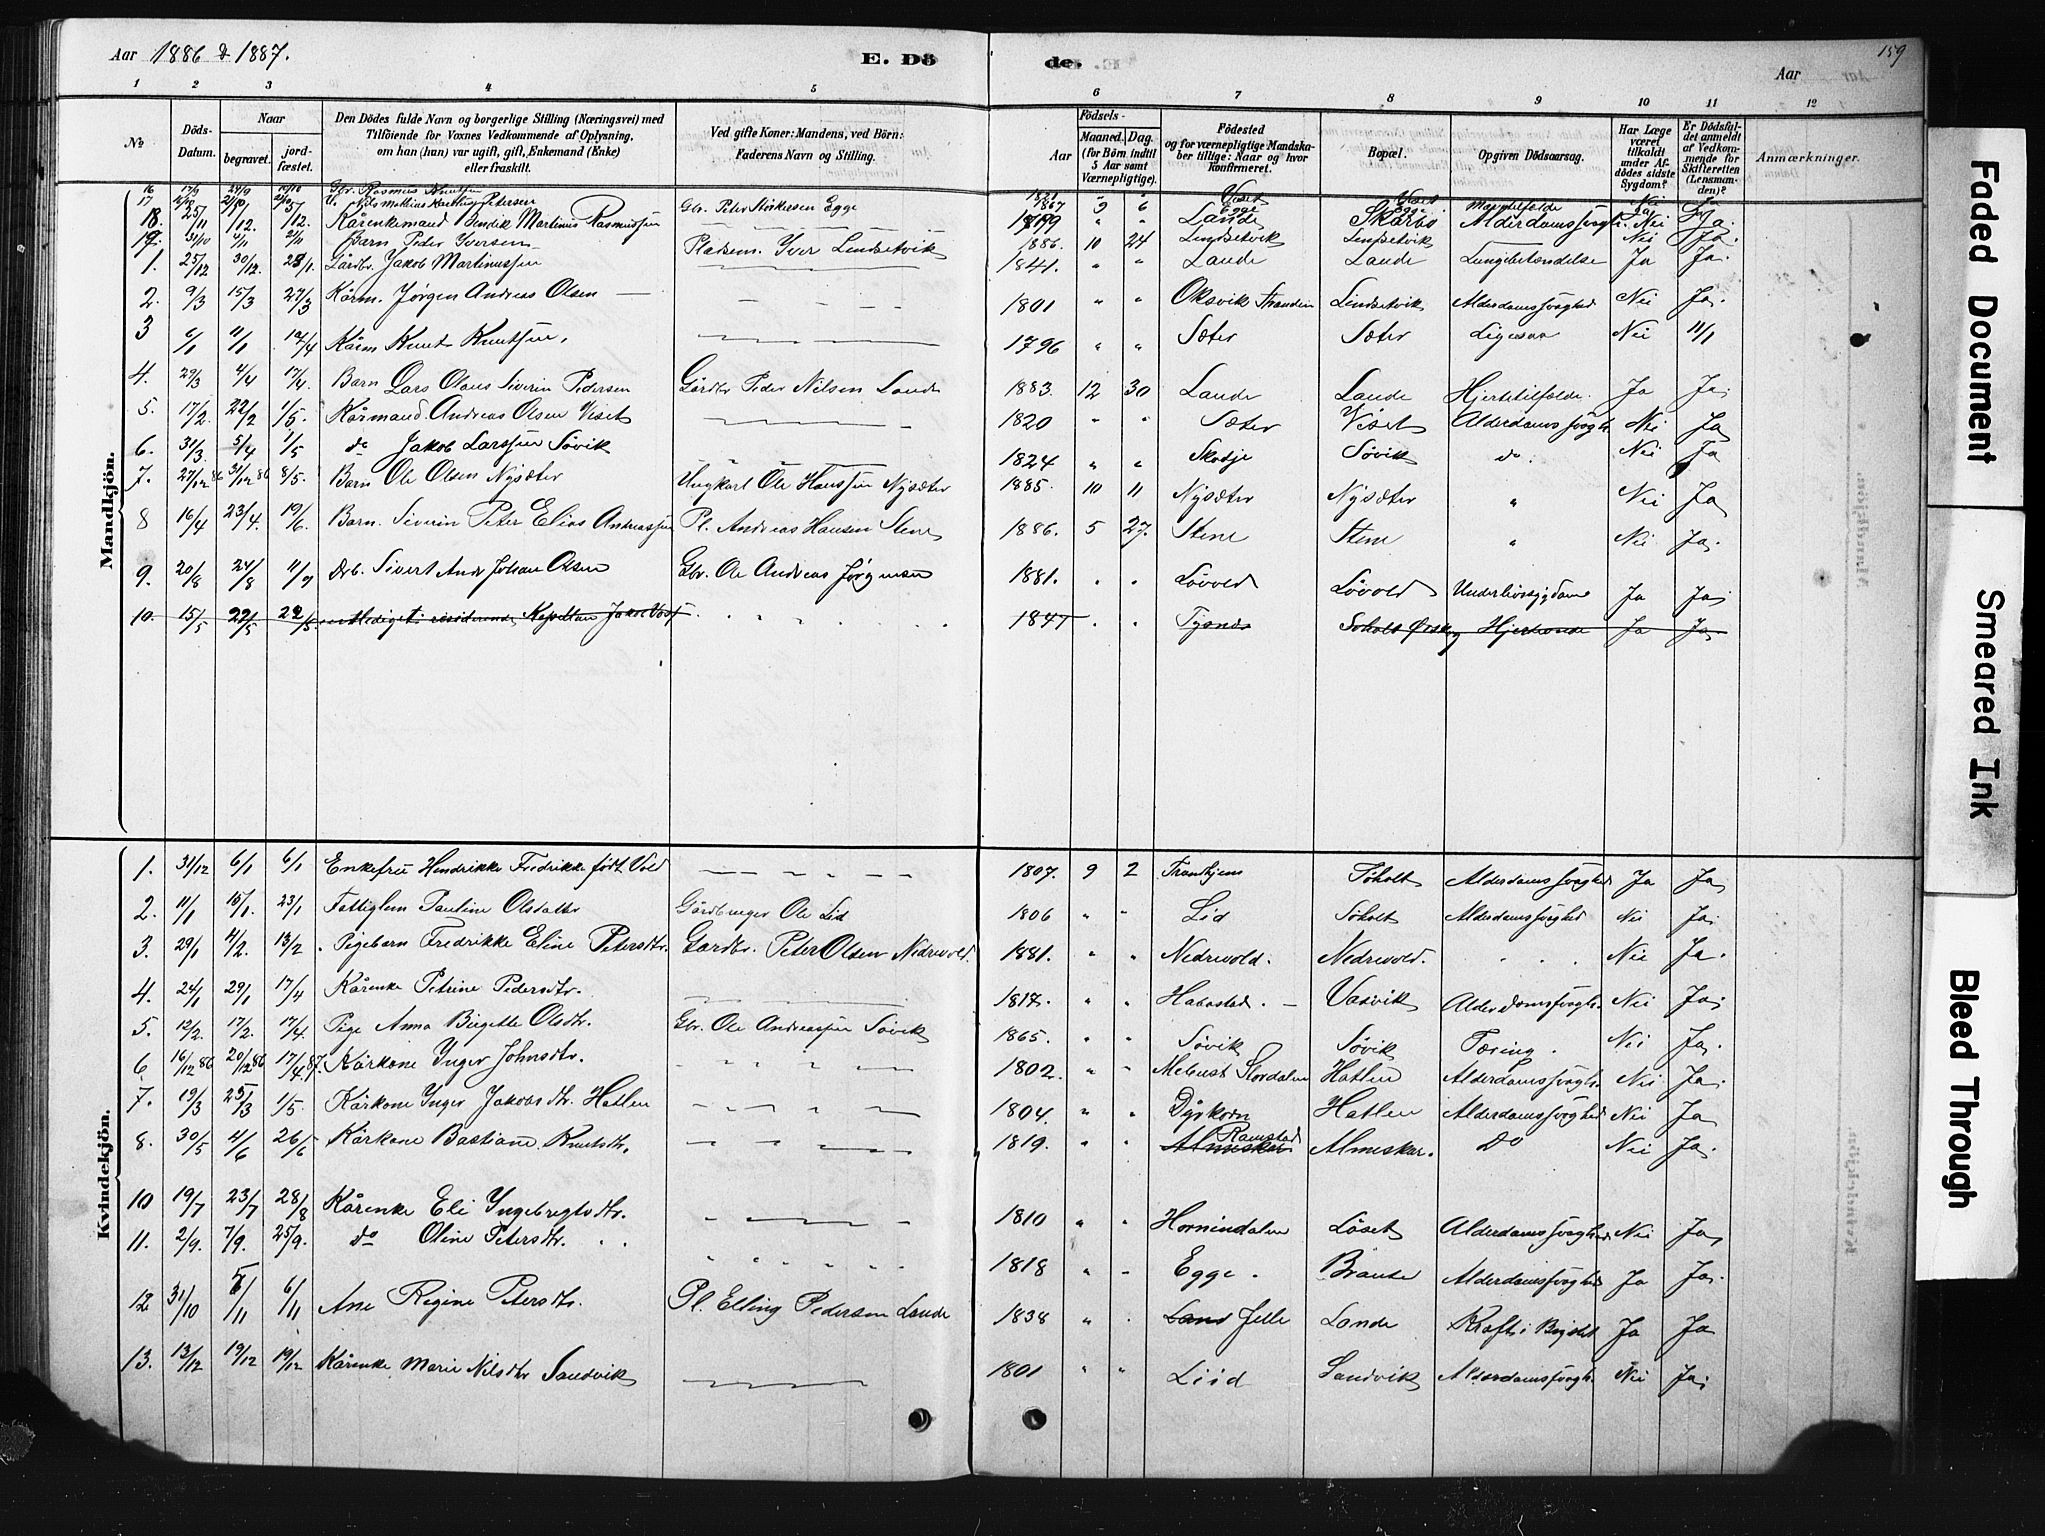 Aar 1886 & 1887.
E. Dö de.
Aar
159
1 2 3 4 5 6 7 8 9 10 11 12
No
Döds-Datum.
Naar
begravet.
jord-fæstet.
Den Dödes fulde Navn og borgerlige Stilling (Næringsvei) med Tilföiende for Voxnes Vedkommende af Oplysning, om han (hun) var ugift, gift, Enkemand (Enke) eller fraskilt.
Ved gifte Koner: Mandens, ved Börn: Faderens Navn og Stilling.
Födsels-
Aar
Maaned. Dag.
(for Börn indtil 5 Aar samt Værnepligtige).
Födested og for værnepligtige Mandskaber tillige: Naar og hvor konfirmeret.
Bopæl.
Opgiven Dödsaarsag.
Har Læge været tilkaldt under Afdödes sidste Sygdom?
Er Dödsfaldet anmeldt af Vedkommende for Skifteretten (Lensmanden)?
Anmærkninger.
Mandkjön.
16 17/9 Gbr. Rasmus Knutsen
17 Nils Mathias Petersen Gbr. Peter Storkersen Egge 1867 9 6 Egge
18. 25/11 /12. 5/12. Kårenkemand Bendik Martinus Rasmussen 1799 " " Lande Skarbö Alderdomssvagh. Nei Ja
19. 31/10 4/11 21/11 Barn Peder Iversen Pladsem. Iver Lindsetvik 1886. 10 24 Lindsetvik Lindsetvik Nei Ja.
1. 25/12 30/12. 23/1. Gårdbr. Jakob Martinussen 1841. " " Lande Lande Lungebetændelse Ja Ja.
2. 9/3 15/3 27/3 Kårm. Jørgen Andreas Olsen 1801 " " Oksvik Stranden Lindsetvik Alderdomssvaghed Nei Ja.
3 6/1 11/1 12/4 Kårm Knut Knutsen. 1796 " " Sæter Sæter Ligesaa Nei 11/1
4. 29/3 4/4 17/4. Barn Lars Olaus Siverin Pedersen Gårdbr Peder Nilsen Lande 1883. 12 30 Lande Lande Hjertetilfælde. Ja Ja.
5. 17/2. 22/2 1/5. Kårmand. Andreas Olsen Viset 1820 " " Sæter Viset Alderdomssvagh. Nei Ja
6. 31/3. 5/4 1/5 do Jakob Larssen Søvik 1824 " " Skodje Søvik do. Nei Ja
7. 27/12 86 31/12 86 8/5. Barn Ole Olsen Nysæter Ungkarl Ole Hanssen Nysæter 1885. 10 11 Nysæter Nysæter " Nei Ja
8 16/4 23/4. 19/6. Barn. Siverin Peter Elias Andreassen Pl. Andreas Hansen Stene 1886. 5 27. Stene Stene " Nei Ja.
9. 20/8 24/8 11/9 Drb. Sivert Andr Johan Olsen Gbr. Ole Andreas Jørgensen 1881. " " Løvold Løvold Underlivssygdom Ja Ja.
10. 15/5 22/5 22/5. Kapellan Jakob 1847 " " Tysnes Søholt Ørskog Hjertonde Ja Ja.
Kvindekjön.
1. 31/12 6/1 6/1 Enkefru Hendrikke Fredrikke født Vold 1807. 9 2 Trondhjem Søholt Alderdomssvaghed Ja Ja
2. 11/1 16/1. 23/1 Fattiglem Pauline Olsdatter Gårdbruger Ole Lid 1806 " " Lid Søholt Alderdomssvaghed Nei Ja.
3. 29/1 4/2. 13/2 Pigebarn Fredrikke Eline Petersdtr. Gardbr. Peter Olsen Nedrevold. 1881. " " Nedrevold. Nedrevold. Nei Ja.
4. 24/1 29/1 17/4 Kårenke Petrine Pedersdtr. 1817. " " Habostad. Vasvik Alderdomssvagh. Nei Ja.
5. 12/2. 17/2. 17/4. Pige Anna Birgitte Olsdtr. Gbr. Ole Andreassen Søvik 1865. " " Søvik Søvik Tæring. Nei Ja.
6 16/12 86 20/12 86 17/4 87. Kårkone Inger Johnsdtr. 1802. " " Meheust Stordalen Hatlen Alderdomssvagh. Nei Ja.
7. 19/3 25/3 1/5. Kårkone Inger Jakobsdtr. Hatlen 1804. " " Dyrkorn Hatlen Alderdomssvaghed Nei Ja
8. 30/5 4/6 26/6 Kårkone Bastiane Knutsdtr. 1819. " " Almeskar Ramstad Almeskar. Do Nei Ja.
10 19/7 23/7 28/8 Kårenke Eli Ingebregtsdtr. 1810 " " Hornindalen Løset Alderdomssvaghed Nei Ja
11. 2/9. 7/9. 25/9. do Oline Petersdtr. 1818 " " Egge. Braute Alderdomssvaghed Ja Ja.
12 31/10 6/11 6/11 Ane Regine Petersdtr. Pl. Elling Pedersen Lande 1838 " " Land Jelle Lande Kræft i Brystet Ja Ja
13. 13/12 19/12 19/12 Kårenke Marie Nilsdtr Sandvik 1801 " " Liid Sandvik Alderdomssvagh. Nei Ja.
Faded Document
Smeared Ink
Bleed Through